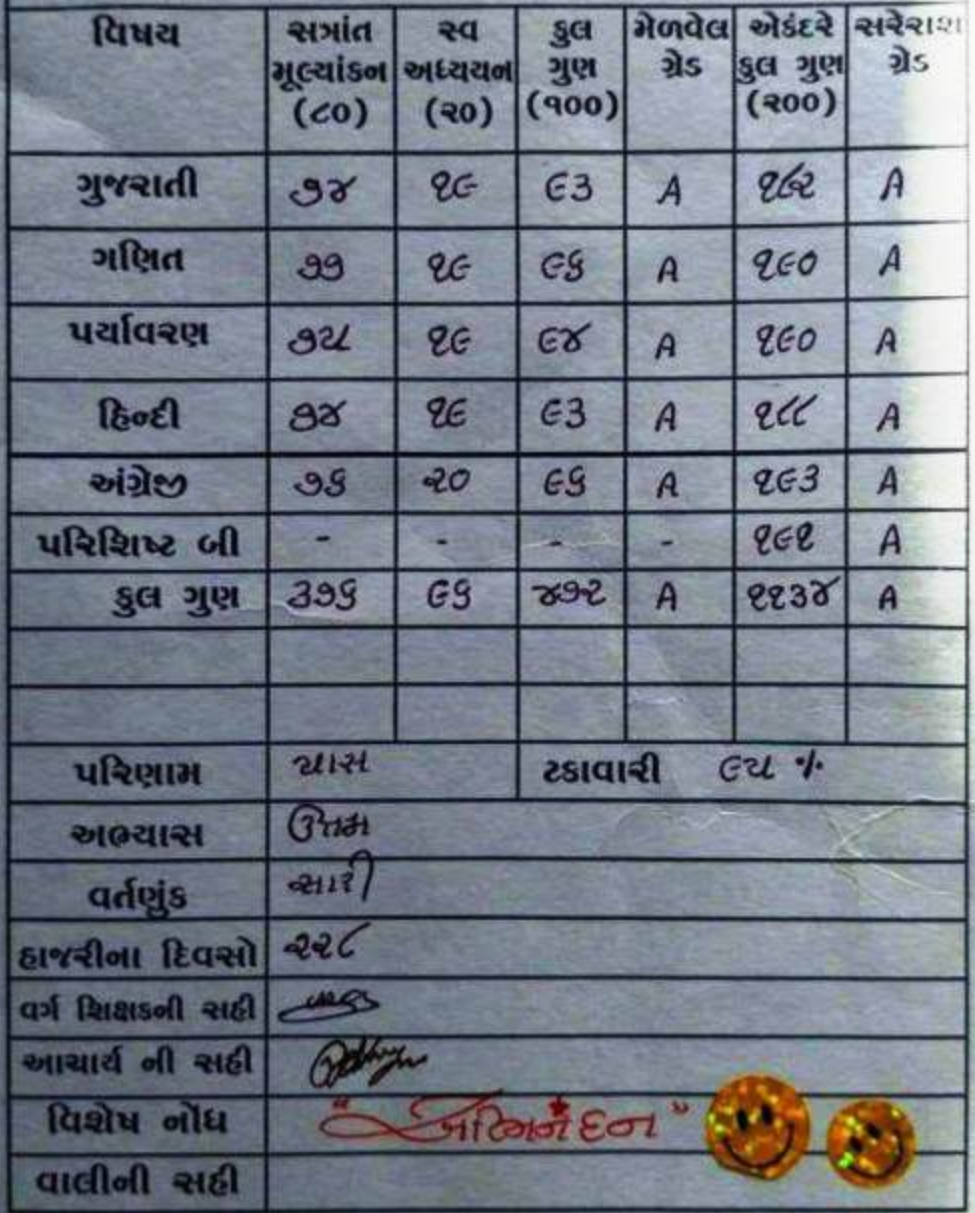 વિષય સત્રાંત મૂલ્યાંકન (૮૦) સ્વ અધ્યયન (૨૦) કુલ ગુણ (૧૦૦) મેળવેલ ગ્રેડ એકંદરે કુલ ગુણ (૨૦૦) સરેરાશ ગ્રેડ
ગુજરાતી ૭૪ ૧૯ ૯૩ A ૧૮૨ A
ગણિત ૭૭ ૧૯ ૯૬ A ૧૯૦ A
પર્યાવરણ ૭૫ ૧૯ ૯૪ A ૧૯૦ A
હિન્દી ૭૪ ૧૯ ૯૩ A ૧૮૮ A
અંગ્રેજી ૭૬ ૨૦ ૯૬ A ૧૯૩ A
પરિશિષ્ટ બી - - - - ૧૯૧ A
કુલ ગુણ ૩૭૬ ૯૬ ૪૭૨ A ૧૧૩૪ A
પરિણામ પાસ ટકાવારી ૯૫ %
અભ્યાસ ઉત્તમ
વર્તણુંક સારી
હાજરીના દિવસો ૨૨૮
વર્ગ શિક્ષકની સહી
આચાર્ય ની સહી
વિશેષ નોંધ "અભિનંદન"
વાલીની સહી